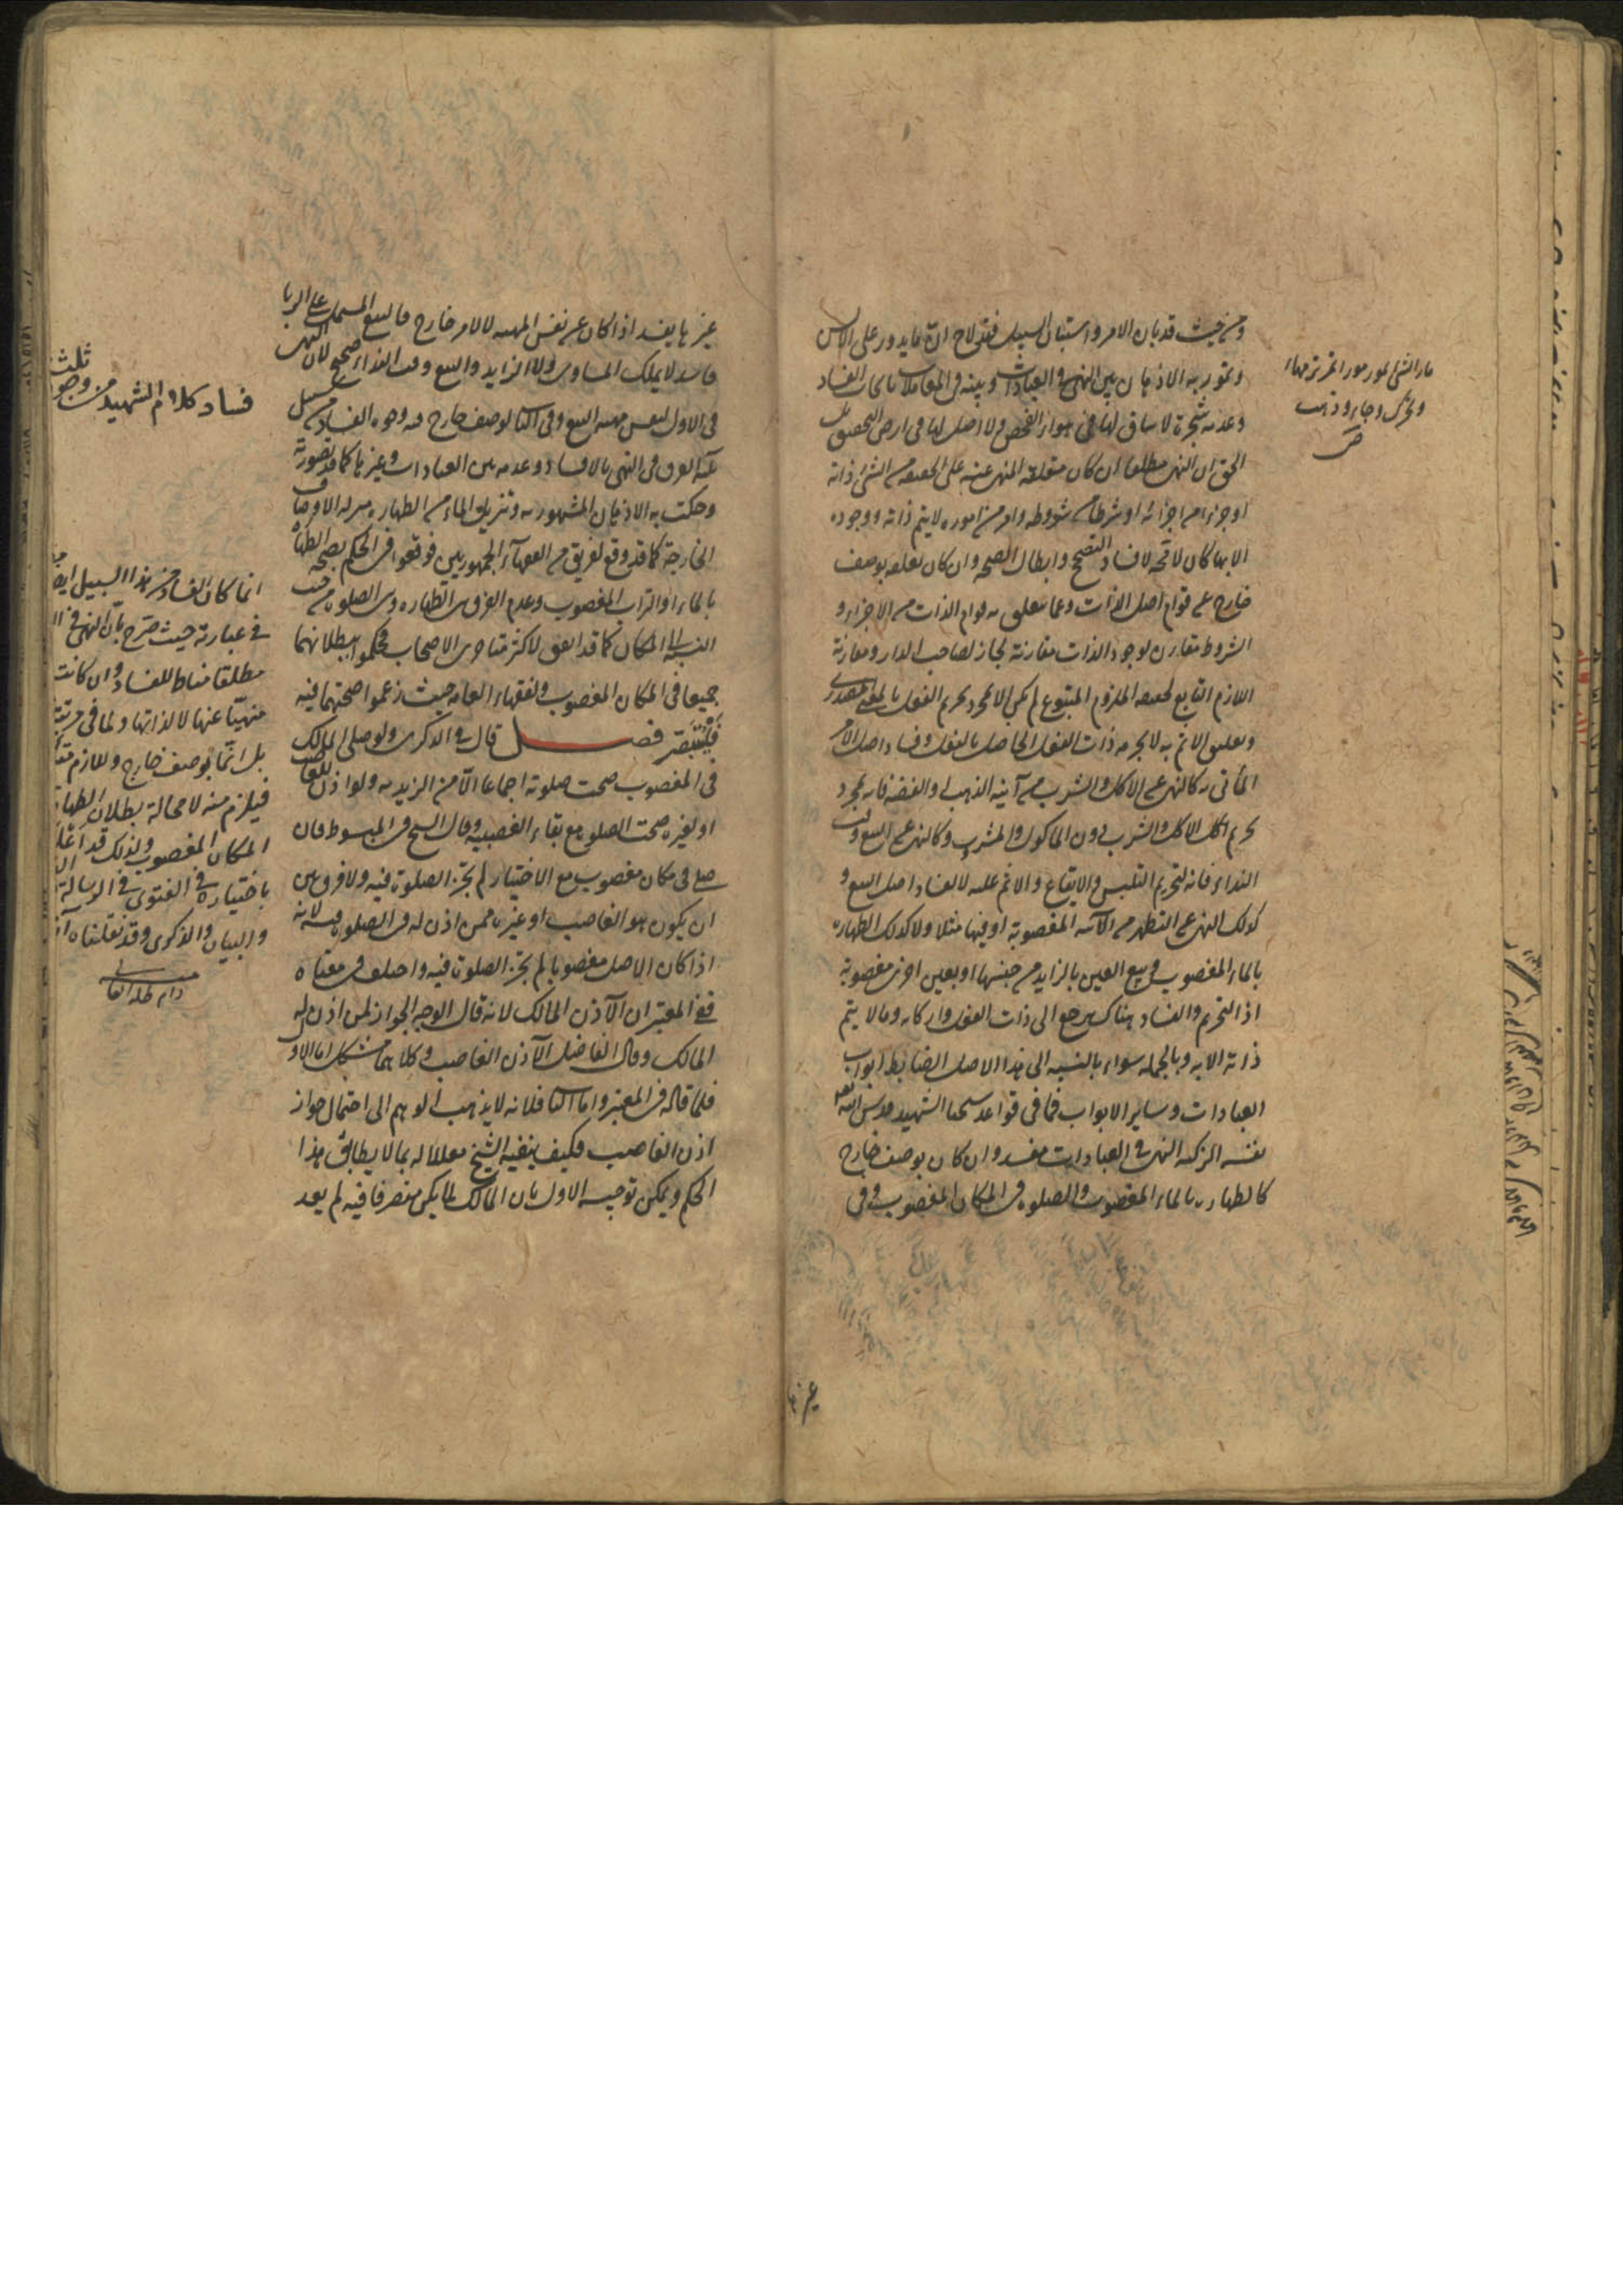 ومن حيث قد بان الامر واستبان السبيل فقد لاح ان ما يدور على الالسن
وتمور به الاذهان من بين النهي في العبادات وبينه في المعاملات بايجاب الفساد
وعدمه شجرة لا ساق لها في هواء الفحص ولا اصل لها في ارض التحصيل بل
الحق ان النهي مطلقا ان كان متعلقه المنهي عنه على الحقيقة من الشئ ذاته
او جزءا من اجزائه او شرطا من شروطه وامر من اموره لا يتم ذاته ووجوده
الا بها كان لا محة لافساد التصحيح وابطال الصحه وان كان تعلقه بوصف
خارج عن قوام اصل الذات وعما يتعلق به قوام الذات من الاجزاء و
الشروط مقارن لوجود الذات مقارنة مجاز لصاحب الدار ومقارنة
اللازم التابع لحقيقة الملزوم المتبوع لم يكن الا مجرد تحريم الفعل بالمعنى المصدري
وتعلق الاثم به لا تحريم ذات الفعل الحاصل بالفعل وفساد اصل الامر
المأتى به كالنهي عن الاكل والشرب من آنية الذهب او الفضه فانه مجرد
تحريم الاكل والشرب دون الماكول والمشرب وكالنهي عن البيع وقت
النداء فانه لتحريم التلبس والايقاع والاثم عليه لا لفساد اصل البيع و
كذلك النهي عن التطهر من الآنيه المغصوبة او فيها مثلا ولا كذلك الطهاره
بالماء المغصوب وبيع العين بالزايد من جنسها او بعين اخرى مغصوبة
اذ التحريم والفساد هناك يرجع الى ذات الفعل واركانه وما لا يتم
ذاته الا به وبالجمله سواء بالنسبه الى هذا الاصل الضابط ابواب
العبادات وساير الابواب فما في قواعد شيخنا الشهيد قدس الله
نفسه الزكيه النهي في العبادات مفسد وان كان بوصف خارج
كالطهاره بالماء المغصوب والصلوه في المكان المغصوب وفي
غيرها
غيرها يفسد اذا كان عن نفس المهيه لا لامر خارج فالبيع المشتمل على الربا
فاسد لا يملك المساوى ولا الزايد والبيع وقت النداء صحيح لان النهي
في الاول لنفس مهيه البيع وفي الثاني لوصف خارج فيه وجوه الفساد من سبيل
الفرق في النهي بالافساد وعدمه بين العبادات وغيرها كما قد تصورته
وحكت به الاذهان المشهوريه وتنزيل الماء من الطهاره منزله الاوصاف
الخارجة كما قد وقع لفريق من الفقهاء الجمهوريين فوقعوا في الحكم بصحه الطهاره
بالماء او التراب المغصوب وعدم الفرق بين الطهاره وبين الصلوه من حيث
النسبه الى المكان كما قد اتفق لاكثر متاخرى الاصحاب فحكموا ببطلانهما
جميعا في المكان المغصوب ولفقهاء العامه حيث زعموا صحتهما فيه
فليتبصر فصل قال في الذكرى ولو صلى المالك
في المغصوب صحت صلوته اجماعا الا من الزيديه ولو اذن للغاصب
او لغيره صحت الصلوه مع بقاء الغصبيه وقال الشيخ في المبسوط فان
صلى في مكان مغصوب مع الاختيار لم تجز الصلوة فيه ولا فرق بين
ان يكون هو الغاصب او غيره ممن اذن له في الصلوه فيه لانه
اذا كان الاصل مغصوبا لم تجز الصلوة فيه واختلف في معناه
ففي المعتبر ان الآذن المالك لانه قال الوجه الجواز لمن اذن له
المالك وقال الفاضل الآذن الغاصب وكلاهما مشكل اما الاول
فلما قاله في المعتبر واما الثاني فلانه لا يذهب الوهم الى احتمال جواز
اذن الغاصب فكيف ينفيه الشيخ معللا له بما لا يطابق هذا
الحكم ويمكن توجيه الاول بان المالك لما لم يكن متصرفا فيه لم يفد
فساد كلام الشهيد من وجوه ثلث
انما كان الفساد من هذا السبيل ايضا
في عبارته حيث صرح بان النهي في
مطلقا مناط للفساد وان كانت
منهيا عنها لا لذاتها ولما في مرتبة
بل انما بوصف خارج ولازم
فيلزم منه لا محالة بطلان الطهارة
المكان المغصوب ولذلك قد
باختياره في الفتوى في الرسالة
والبيان والذكرى وقد نقلناه
دام ظله العالي